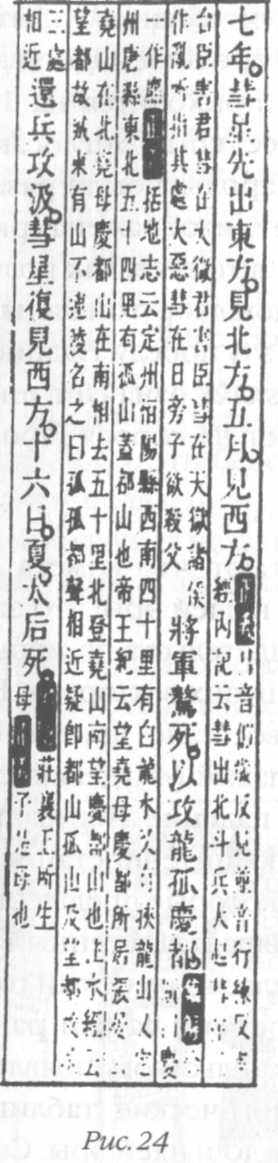 七年彗星先出東方見北方五月見西方正義彗音似歲反見並音行練反孝
經內記云彗出北斗兵大起彗在三
台臣害君彗在太微君害臣彗在天獄諸侯
作亂所指其處大惡彗在日旁子欲殺父 將軍驁死以攻龍孤慶都集解徐廣曰慶
一作麃正義括地志云定州恒陽縣西南四十里有白龍水又有挾龍山又定
州唐縣東北五十四里有孤山蓋都山也帝王紀云望堯母慶都所居張晏
堯山在北堯母慶都山在南相去五十里北登堯山南望慶都山也注水經云
望都故城東有山不連陵名之曰孤孤都聲相近疑即都山孤山及望都故城
三處
相近 還兵攻汲彗星復見西方十六日夏太后死索隱莊襄王所生
母正義子楚母也
Рис.24